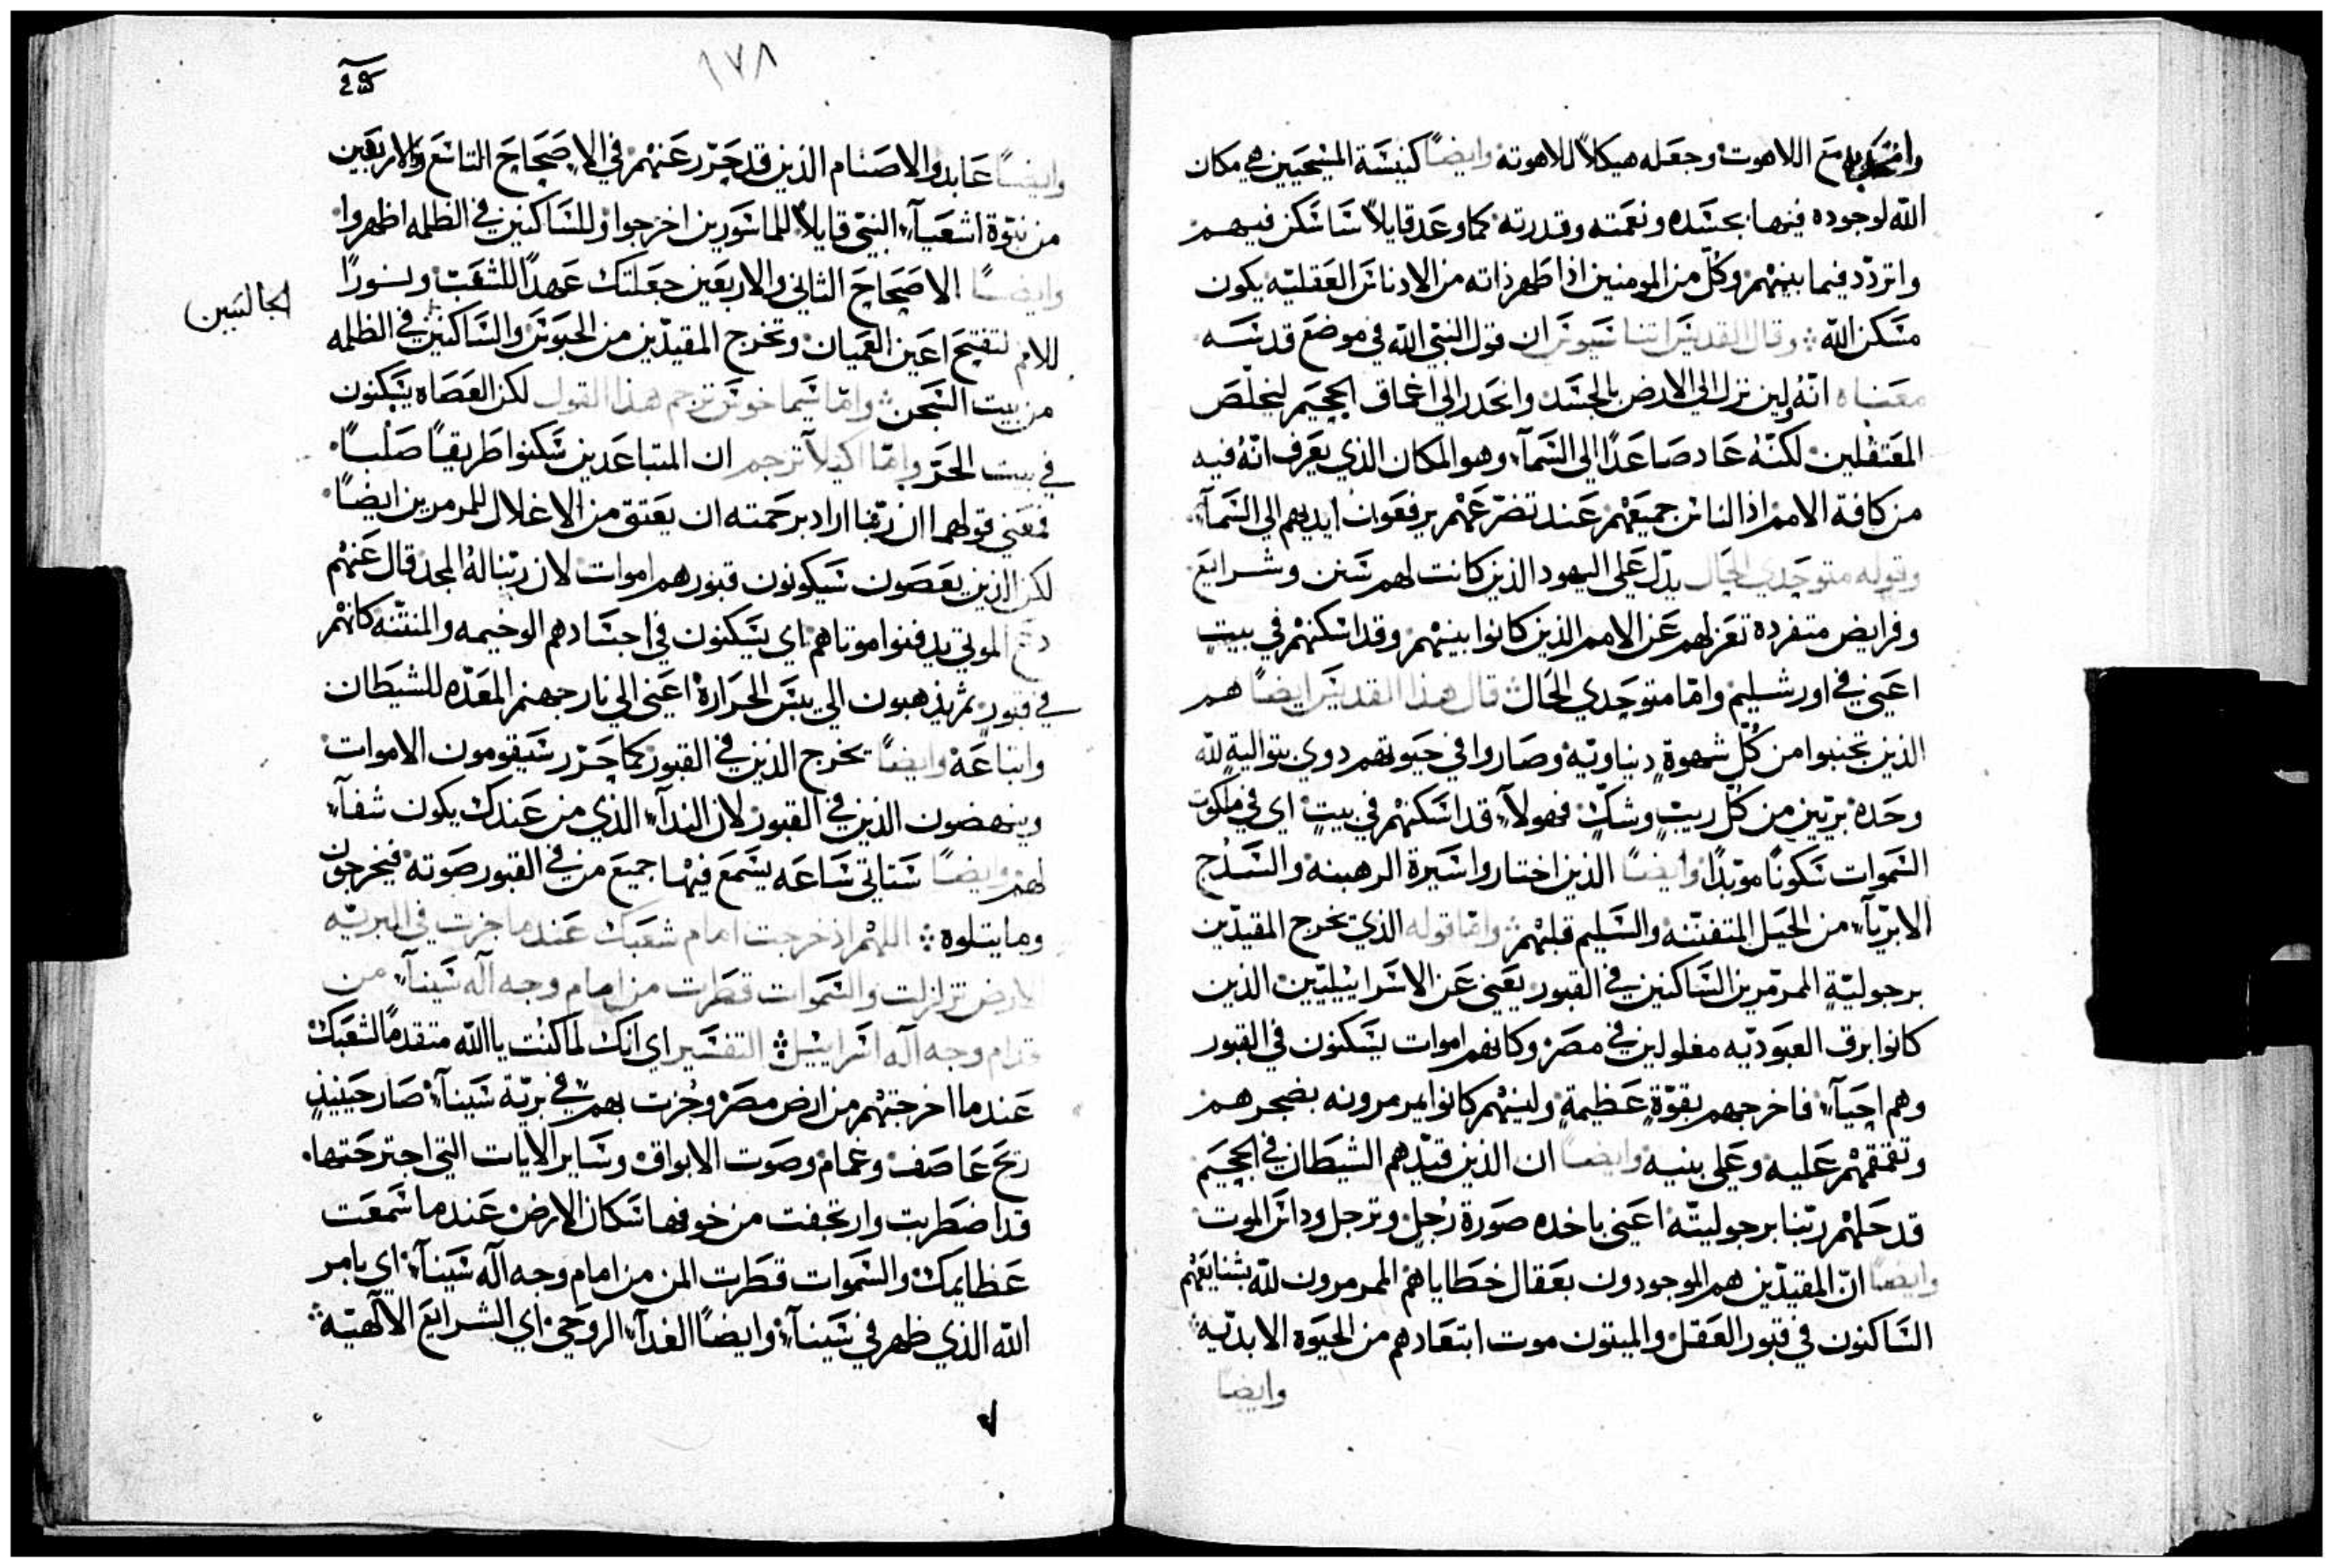 وامتحد به مع اللاهوت وجعله هيكلاً للاهوته وايضاً كنيسة المسيحيين هي مكان
اللّه لوجوده فيها بجسده ونعمته وقدرته كما وعد قايلاً ساسكن فيهم
واتردّد فيما بينهم وكُلّ من المومنين اذا طهر ذاته من الادناس العقليّه يكون
مسكن اللّه وقال القديس اتناسيوس ان قول النبي اللّه في موضع قدسه
معناه انّهُ ولين نزل الي الارض بالجسد وانحدر الي اعماق الجحيم ليخلّص
المعتقلين لكنّهُ عاد صاعداً الي السمآء وهو المكان الذي يعرف انّهُ فيه
من كافة الامم اذ الناس جميعهم عند تضرّعهم يرفعون ايديهم الي السمآء
وقوله متوحدي الحال يدّل علي اليهود الذين كانت لهم سنن وشرايع
وفرايض متفرده تعزلهم عن الامم الذين كانوا بينهم وقد اسكنهم في بيتٍ
اعني في اورشليم وامّا متوحدي الحال قال هذا القديس ايضاً هم
الذين تجنبوا من كُلّ شهوةٍ دنياويّه وصاروا في حيوتهم دوي بتواليةٍ للّه
وحده بريّين من كلّ ريبٍ وشكٍّ فهولآء قد اسكنهم في بيتٍ اي في ملكوت
السموات سكوناً موبّداً وايضاً الذين اختاروا سيرة الرهبنه والسُدّج
الابريآء من الحيل المتفننه والسليم قلبهم وامّا قوله الذي تخرج المقيدّين
برجوليّةٍ الممرّمرين الساكنين في القبور يعني عن الاسراييليّين الذين
كانوا برق العبوديّه مغلولين في مصر وكانهم اموات يسكنون في القبور
وهم احيآء فاخرجهم بقوّةٍ عظيمةٍ ولينهم كانوا يمرمرونه بضجرهم
وتقمقمهم عليه وعلي بنيه وايضاً ان الذين قيّدهم الشيطان في الجحيم
قد حلهم ربّنا برجوليتّه اعني باخده صورة رُجلٍ وترجل وداس الموت
وايضاً انّ المقيدّين هم الموجودون بعقال خطاياهم الممرمرون للّه بشنايعهم
الساكنون في قبور العقل والميتون موت ابتعادهم من الحيوه الابديّه
وايضاً
١٧٨
وايضاً عابدوا الاصنام الذين قد حرّر عنهم في الاصحاح التاسع والاربعين
من نبوّة اشعيآء النبيّ قايلاً للماسورين اخرجوا وللساكنين في الظلمه اظهروا
وايضاً الاصحاح الثاني والاربعين جعلتك عهداً للشعب ونوراً
للامم لتفتيح اعين العميان وتخرج المقيدّين من الحبوس والساكنين في الظلمه
الجالسين
من بيت السجن وامّا سيماخوس ترجم هذا القول لكن العصاه يسكنون
في بيت الحرّ وامّا اكيلا ترجم ان المتباعدين سكنوا طريقاً صلباً
فمعني قولهما ان ربّنا اراد برحمته ان يعتق من الاغلال للمرمرين ايضاً
لكن الذين يعصون سيكونون قبورهم اموات لان ربّنا لهُ المجد قال عنهم
دع الموتي يدفنوا موتاهم اي يسكنون في اجسادهم الوخيمه والمنتنه كانهم
في قبورٍ ثم يذهبون الي يبس الحراره اعني الي نار جهنم المعدّه للشيطان
واتباعه وايضاً تخرج الذين في القبور كما حرّر سيقومون الاموات
وينهضون الذين في القبور لان الندآء الذي من عندك يكون شفآء
لهم وايضاً ستاتي ساعه يسمع فيها جميع من في القبور صوته فيخرجون
وما يتلوه اللهم اذ خرجت امام شعبك عند ما جزت في البريّه
الارض تزلزلت والسموات قطرت من امام وجه آله سينآء من
قدام وجه آله اسراييل التفسير اي انك لما كنت يا اللّه متقدماً لشعبك
عندما اخرجتهم من ارض مصر وجُزت بهم في بريّة سينآء صار حينيذٍ
ريح عاصف وغمام وصوت الابواق وساير الايات التي اجترحتها
قد اضطربت وارتجفت من خوفها سكان الارض عند ما سمعت
عظايمك والسموات قطرت المن من امام وجه آله سينآء اي بامر
اللّه الذي ظهر في سينآء وايضاً الغدآء الروحي اي الشرايع الآلهيّه